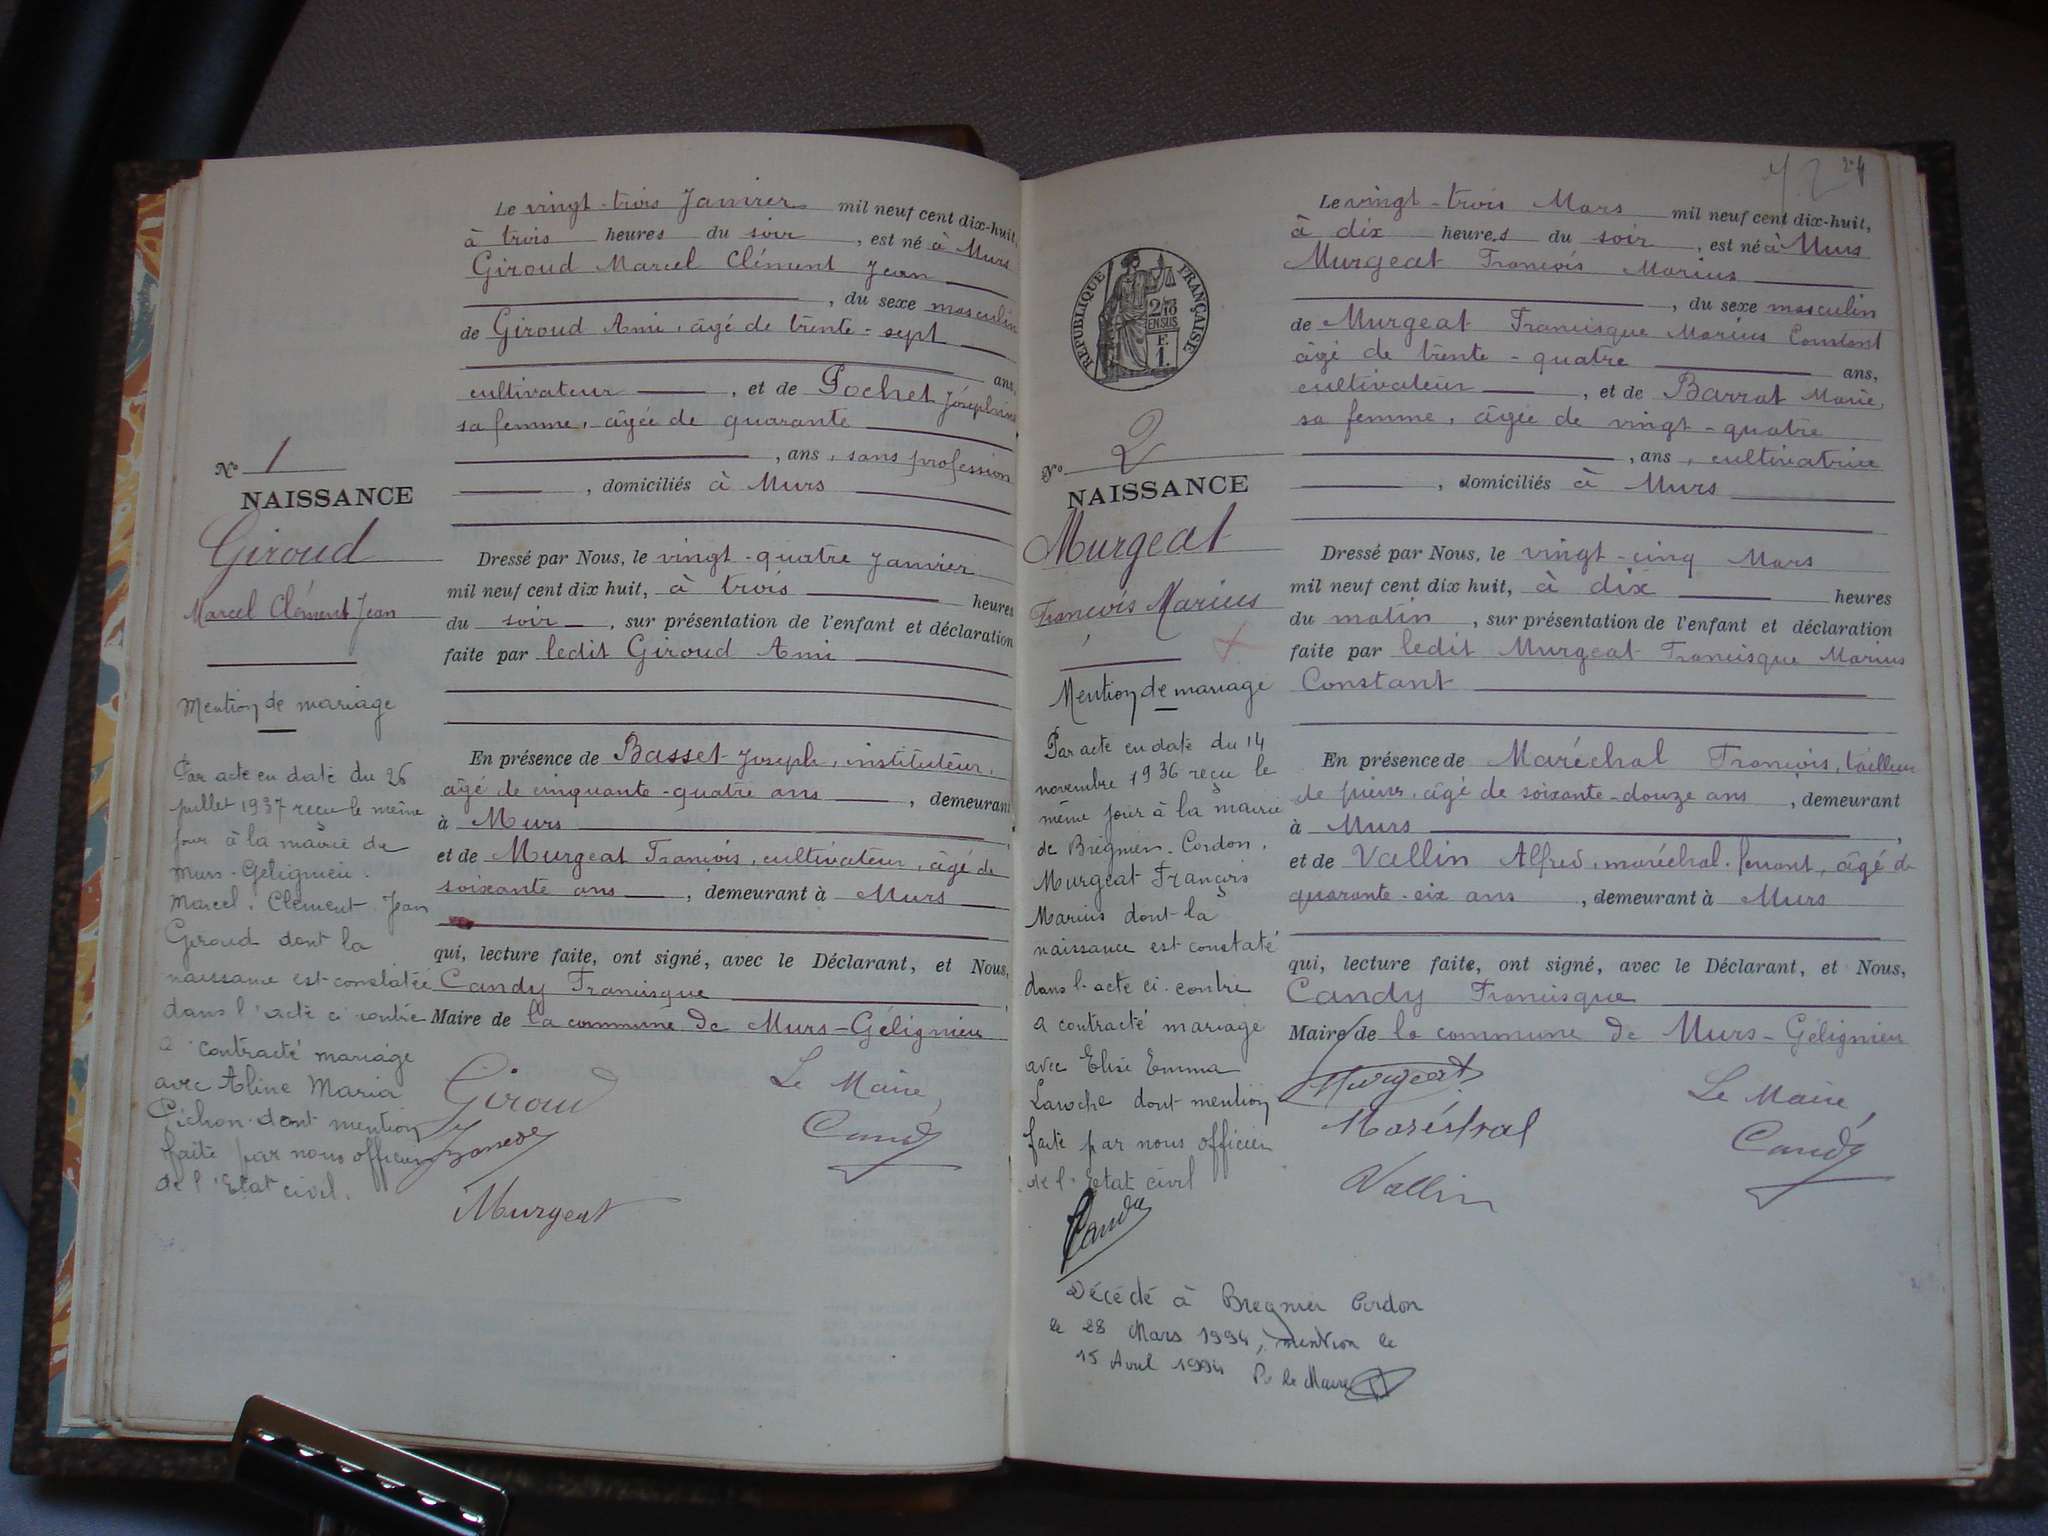 Le vingt-trois Janvier mil neuf cent dix-huit,
à trois heures du soir, est né à Murs
Giroud Marcel Clément Jean
, du sexe masculin
de Giroud Ami, âgé de trente-sept
ans,
cultivateur, et de Pochet Joséphine
sa femme, âgée de quarante
, ans, sans profession
, domiciliés à Murs
N° 1
NAISSANCE
Giroud
Marcel Clément Jean
Dressé par Nous, le vingt-quatre Janvier
mil neuf cent dix huit, à trois heures
du soir, sur présentation de l'enfant et déclaration
faite par ledit Giroud Ami
En présence de Basset Joseph, instituteur,
âgé de cinquante-quatre ans, demeurant
à Murs
et de Murgeat François, cultivateur, âgé de
soixante ans, demeurant à Murs
qui, lecture faite, ont signé, avec le Déclarant, et Nous,
Candy Francisque
Maire de la commune de Murs-Gélignieu
Giroud
Le Maire,
Candy
Murgeat
Mention de mariage
Par acte en date du 26
juillet 1937 reçu le même
jour à la mairie de
Murs-Gélignieu.
Marcel. Clément Jean
Giroud dont la
naissance est constatée
dans l'acte ci contre
a contracté mariage
avec Aline Maria
Pichon dont mention
faite par nous officier
de l'Etat civil.
24
Le vingt-trois Mars mil neuf cent dix-huit,
à dix heures du soir, est né à Murs
Murgeat François Marius
, du sexe masculin
de Murgeat Francisque Marius Constant
âgé de trente-quatre ans,
cultivateur, et de Barrat Marie,
sa femme, âgée de vingt-quatre
, ans, cultivatrice
, domiciliés à Murs
RÉPUBLIQUE FRANÇAISE
2/10
EN SUS
F.
1.
N° 2
NAISSANCE
Murgeat
François Marius
Dressé par Nous, le vingt-cinq Mars
mil neuf cent dix huit, à dix heures
du matin, sur présentation de l'enfant et déclaration
faite par ledit Murgeat Francisque Marius
Constant
En présence de Maréchal François, tailleur
de pierre, âgé de soixante-douze ans, demeurant
à Murs
et de Vallin Alfred, maréchal-ferrant, âgé de
quarante-six ans, demeurant à Murs
qui, lecture faite, ont signé, avec le Déclarant, et Nous,
Candy Francisque
Maire de la commune de Murs-Gélignieu
Murgeat
Le Maire,
Maréchal
Candy
Vallin
Mention de mariage
Par acte en date du 14
novembre 1936 reçu le
même jour à la mairie
de Brégnier-Cordon.
Murgeat François
Marius dont la
naissance est constaté
dans l'acte ci-contre
a contracté mariage
avec Elise Emma
Laroche dont mention
faite par nous officier
de l'Etat civil
Candy
Décédé à Bregnier Cordon
le 28 Mars 1994, mention le
15 Avril 1994 P. le Maire